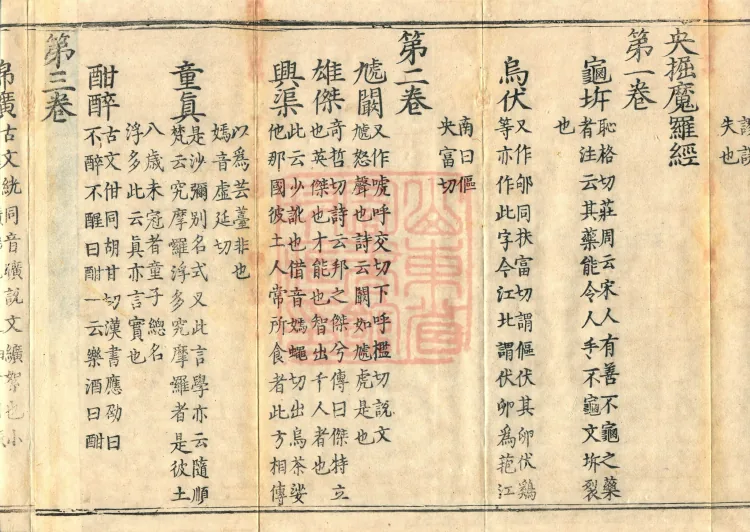 失也
央掘魔羅經
第一卷
龜坼
恥格切莊周云宋人有善不龜之藥
者注云其藥能令人手不龜文坼裂
也
烏伏
又作同扶富切謂傴伏其卵伏鷄
等亦作此字今江北謂伏卵爲菢江
南曰傴
央富切
第二卷
虓闞
又作唬呼交切下呼檻切說文
虓怒聲也詩云闞如虓虎是也
雄傑
奇哲切詩云邦之傑兮傳曰傑特立
也英傑也才能也智出千人者也
興渠
此云少訛也借音嫣蠅切出烏茶娑
他那國彼土人常所食者此方相傳
以爲芸薹非也
嫣音虛延切
童眞
是沙彌別名式叉此言學亦云隨順
梵云究摩羅浮多究摩羅者是彼土
八歲未冠者童子總名
浮多此云眞亦言實也
酣醉
古文佄同胡甘切漢書應劭曰
不醉不醒曰酣一云樂酒曰酣
第三卷
纊
古文絖同音曠說文纊絮也小